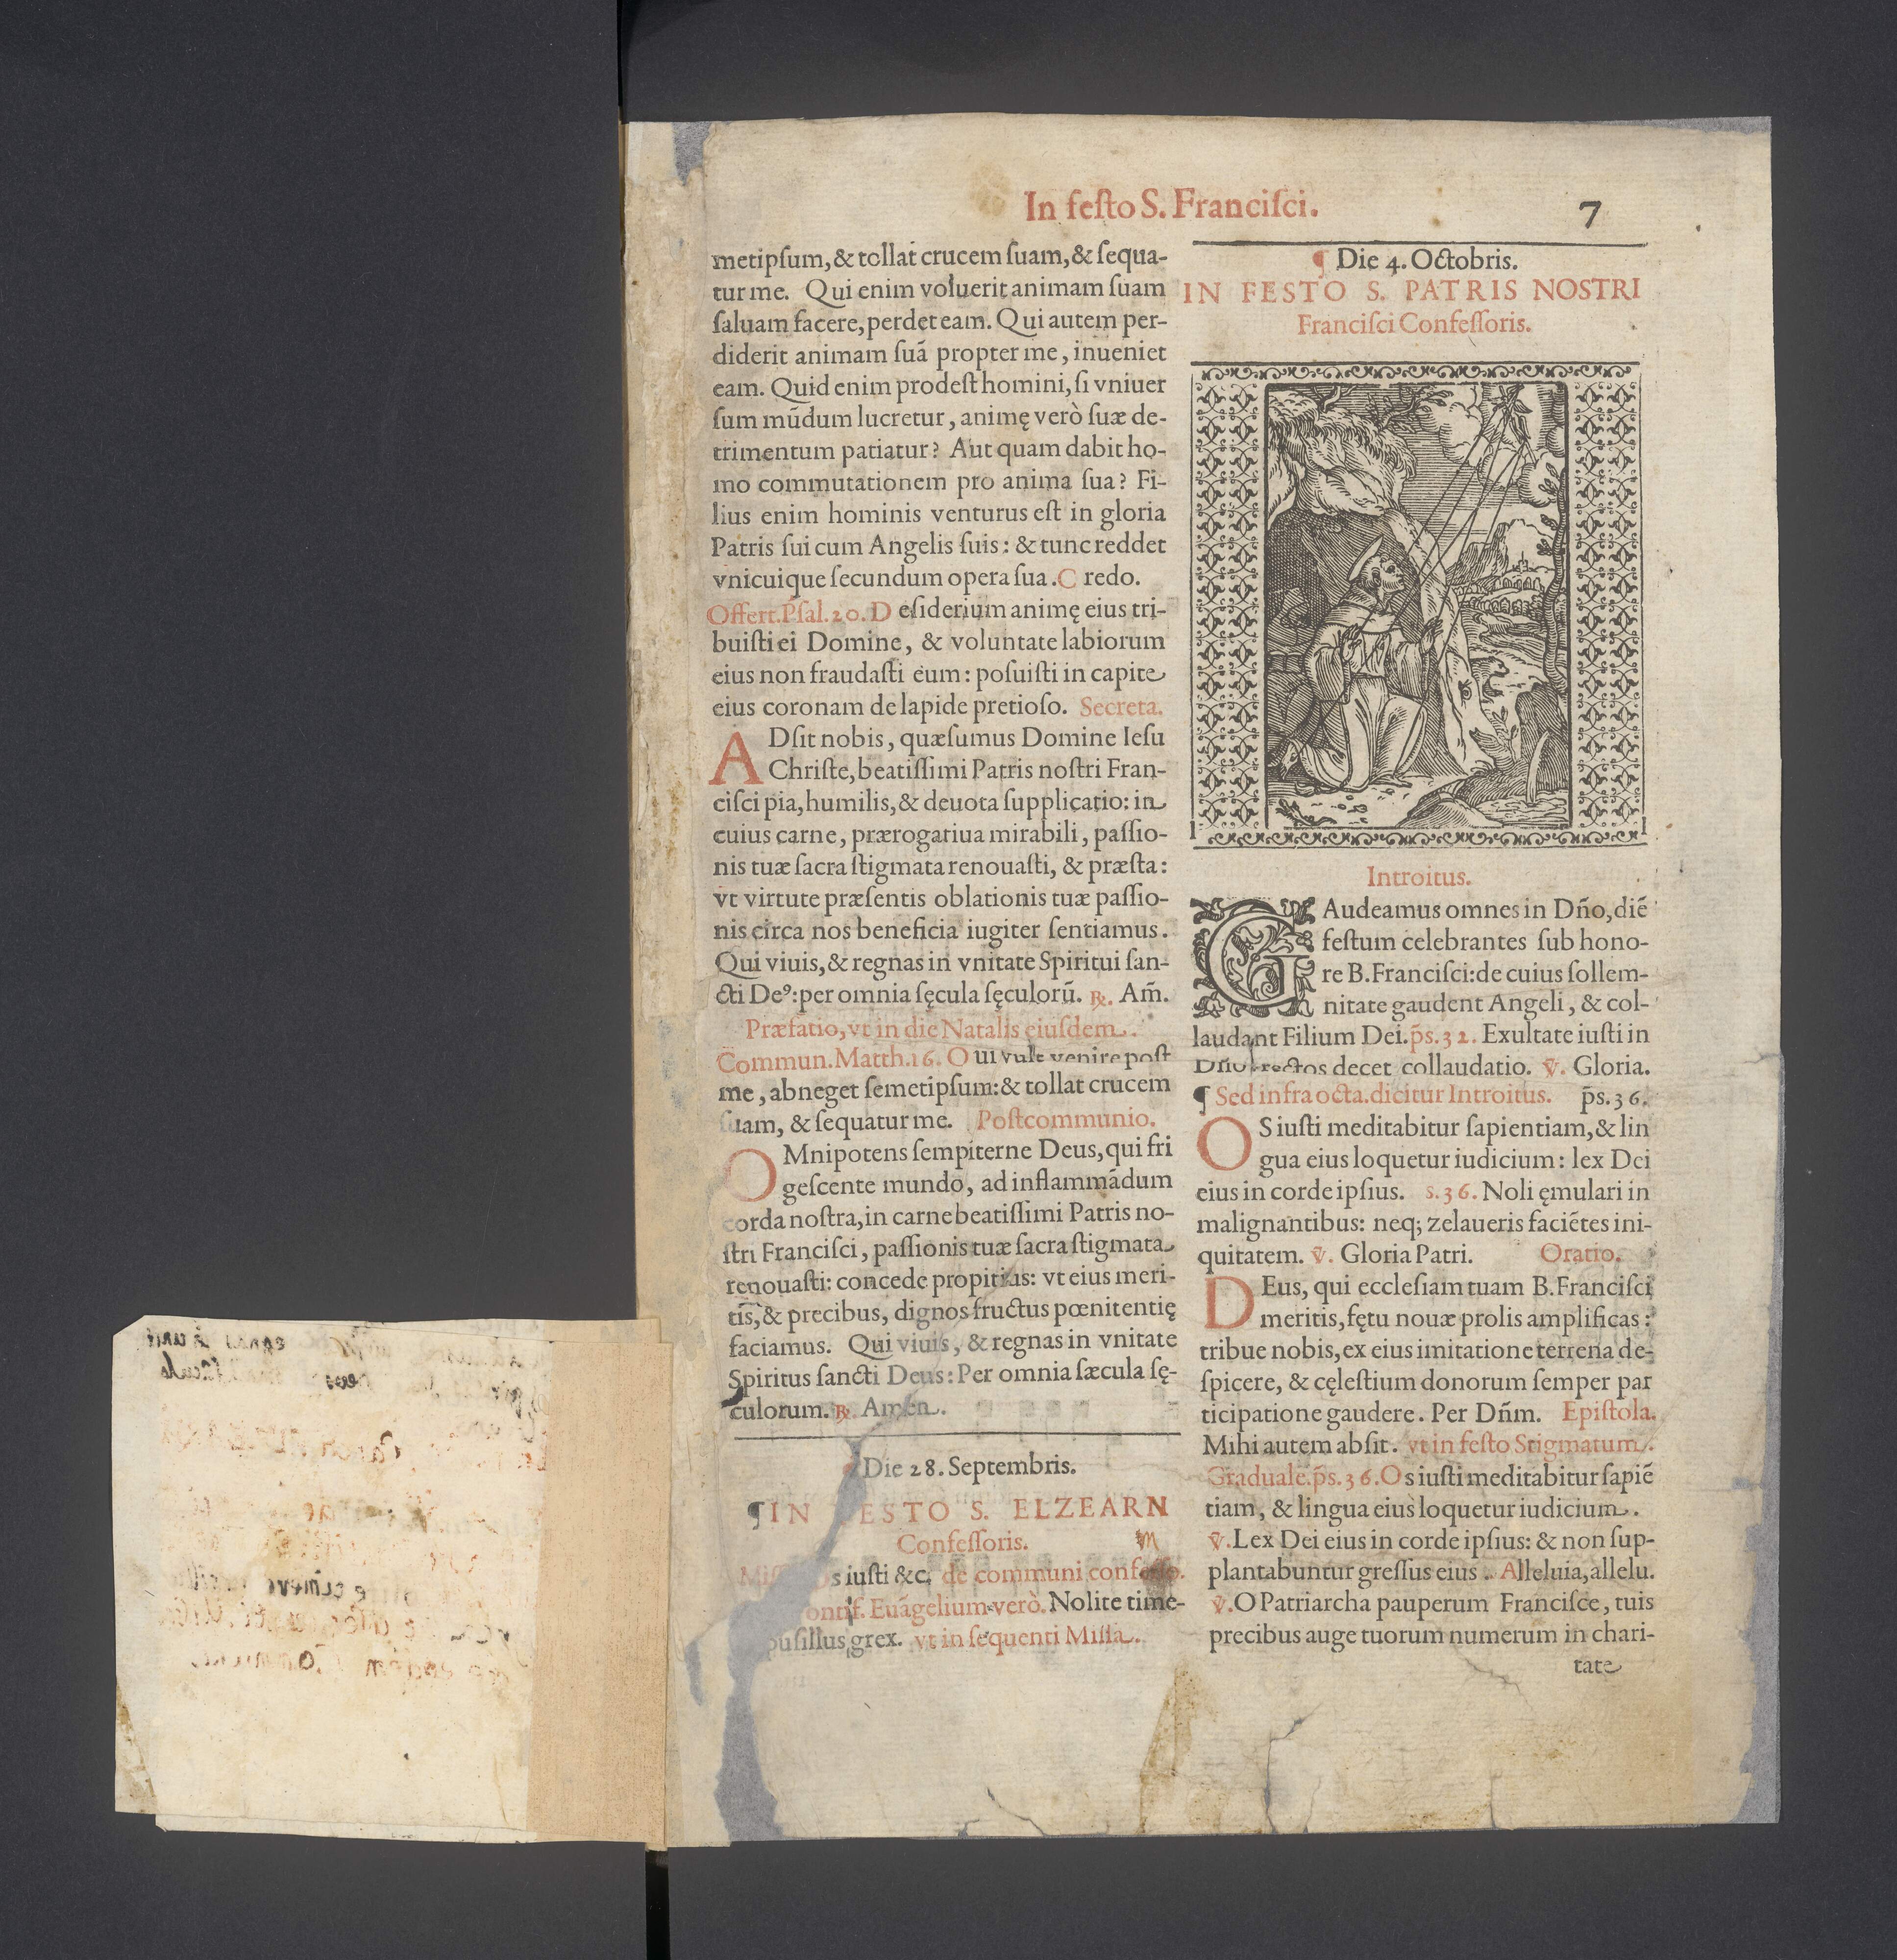 In feſto S. Franciſci.
7
metipſum, & tollat crucem ſuam, & ſequa-
tur me. Qui enim voluerit animam ſuam
ſaluam facere, perdet eam. Qui autem per-
diderit animam ſuā propter me, inueniet
eam. Quid enim prodeſt homini, ſi vniuer
ſum mūdum lucretur, animę verò ſuæ de-
trimentum patiatur? Aut quam dabit ho-
mo commutationem pro anima ſua? Fi-
lius enim hominis venturus eſt in gloria
Patris ſui cum Angelis ſuis: & tunc reddet
vnicuique ſecundum opera ſua. C redo.
Offert. Pſal. 20. D eſiderium animę eius tri-
buiſti ei Domine, & voluntate labiorum
eius non fraudaſti eum: poſuiſti in capite
eius coronam de lapide pretioſo. Secreta.
A Dſit nobis, quæſumus Domine Ieſu
Chriſte, beatiſſimi Patris noſtri Fran-
ciſci pia, humilis, & deuota ſupplicatio: in
cuius carne, prærogatiua mirabili, paſſio-
nis tuæ ſacra ſtigmata renouaſti, & præſta:
vt virtute præſentis oblationis tuæ paſſio-
nis circa nos beneficia iugiter ſentiamus.
Qui viuis, & regnas in vnitate Spiritui ſan-
cti Deꝰ: per omnia ſęcula ſęculorū. ℞. Am̄.
Præfatio, vt in die Natalis eiuſdem.
Commun. Matth. 16. Q ui vult venire poſt
me, abneget ſemetipſum: & tollat crucem
ſuam, & ſequatur me. Poſtcommunio.
O Mnipotens ſempiterne Deus, qui fri
geſcente mundo, ad inflammādum
corda noſtra, in carne beatiſſimi Patris no-
ſtri Franciſci, paſſionis tuæ ſacra ſtigmata
renouaſti: concede propitius: vt eius meri-
tis, & precibus, dignos fructus pœnitentię
faciamus. Qui viuis, & regnas in vnitate
Spiritus ſancti Deus: Per omnia ſæcula ſę-
culorum. ℞. Amen.
Die 28. Septembris.
¶ IN ESTO S. ELZEARN
Confeſſoris.
s iuſti &c. de communi confeſſo.
ontif. Euāgelium verò. Nolite time-
puſillus grex. vt in ſequenti Miſſa.
¶ Die 4. Octobris.
IN FESTO S. PATRIS NOSTRI
Franciſci Confeſſoris.
Introitus.
G Audeamus omnes in Dño, diē
feſtum celebrantes ſub hono-
re B. Franciſci: de cuius ſollem-
nitate gaudent Angeli, & col-
laudant Filium Dei. p̄s. 32. Exultate iuſti in
Dño rectos decet collaudatio. ℣. Gloria.
¶ Sed infra octa. dicitur Introitus. p̄s. 36.
O S iuſti meditabitur ſapientiam, & lin
gua eius loquetur iudicium: lex Dei
eius in corde ipſius. s. 36. Noli ęmulari in
malignantibus: neq; zelaueris faciētes ini-
quitatem. ℣. Gloria Patri. Oratio.
D Eus, qui eccleſiam tuam B. Franciſci
meritis, fętu nouæ prolis amplificas:
tribue nobis, ex eius imitatione terrena de-
ſpicere, & cęleſtium donorum ſemper par
ticipatione gaudere. Per Dñm. Epiſtola.
Mihi autem abſit. vt in feſto Stigmatum.
Graduale. p̄s. 36. O s iuſti meditabitur ſapiē
tiam, & lingua eius loquetur iudicium.
℣. Lex Dei eius in corde ipſius: & non ſup-
plantabuntur greſſus eius. Alleluia, allelu.
℣. O Patriarcha pauperum Franciſce, tuis
precibus auge tuorum numerum in chari-
tate